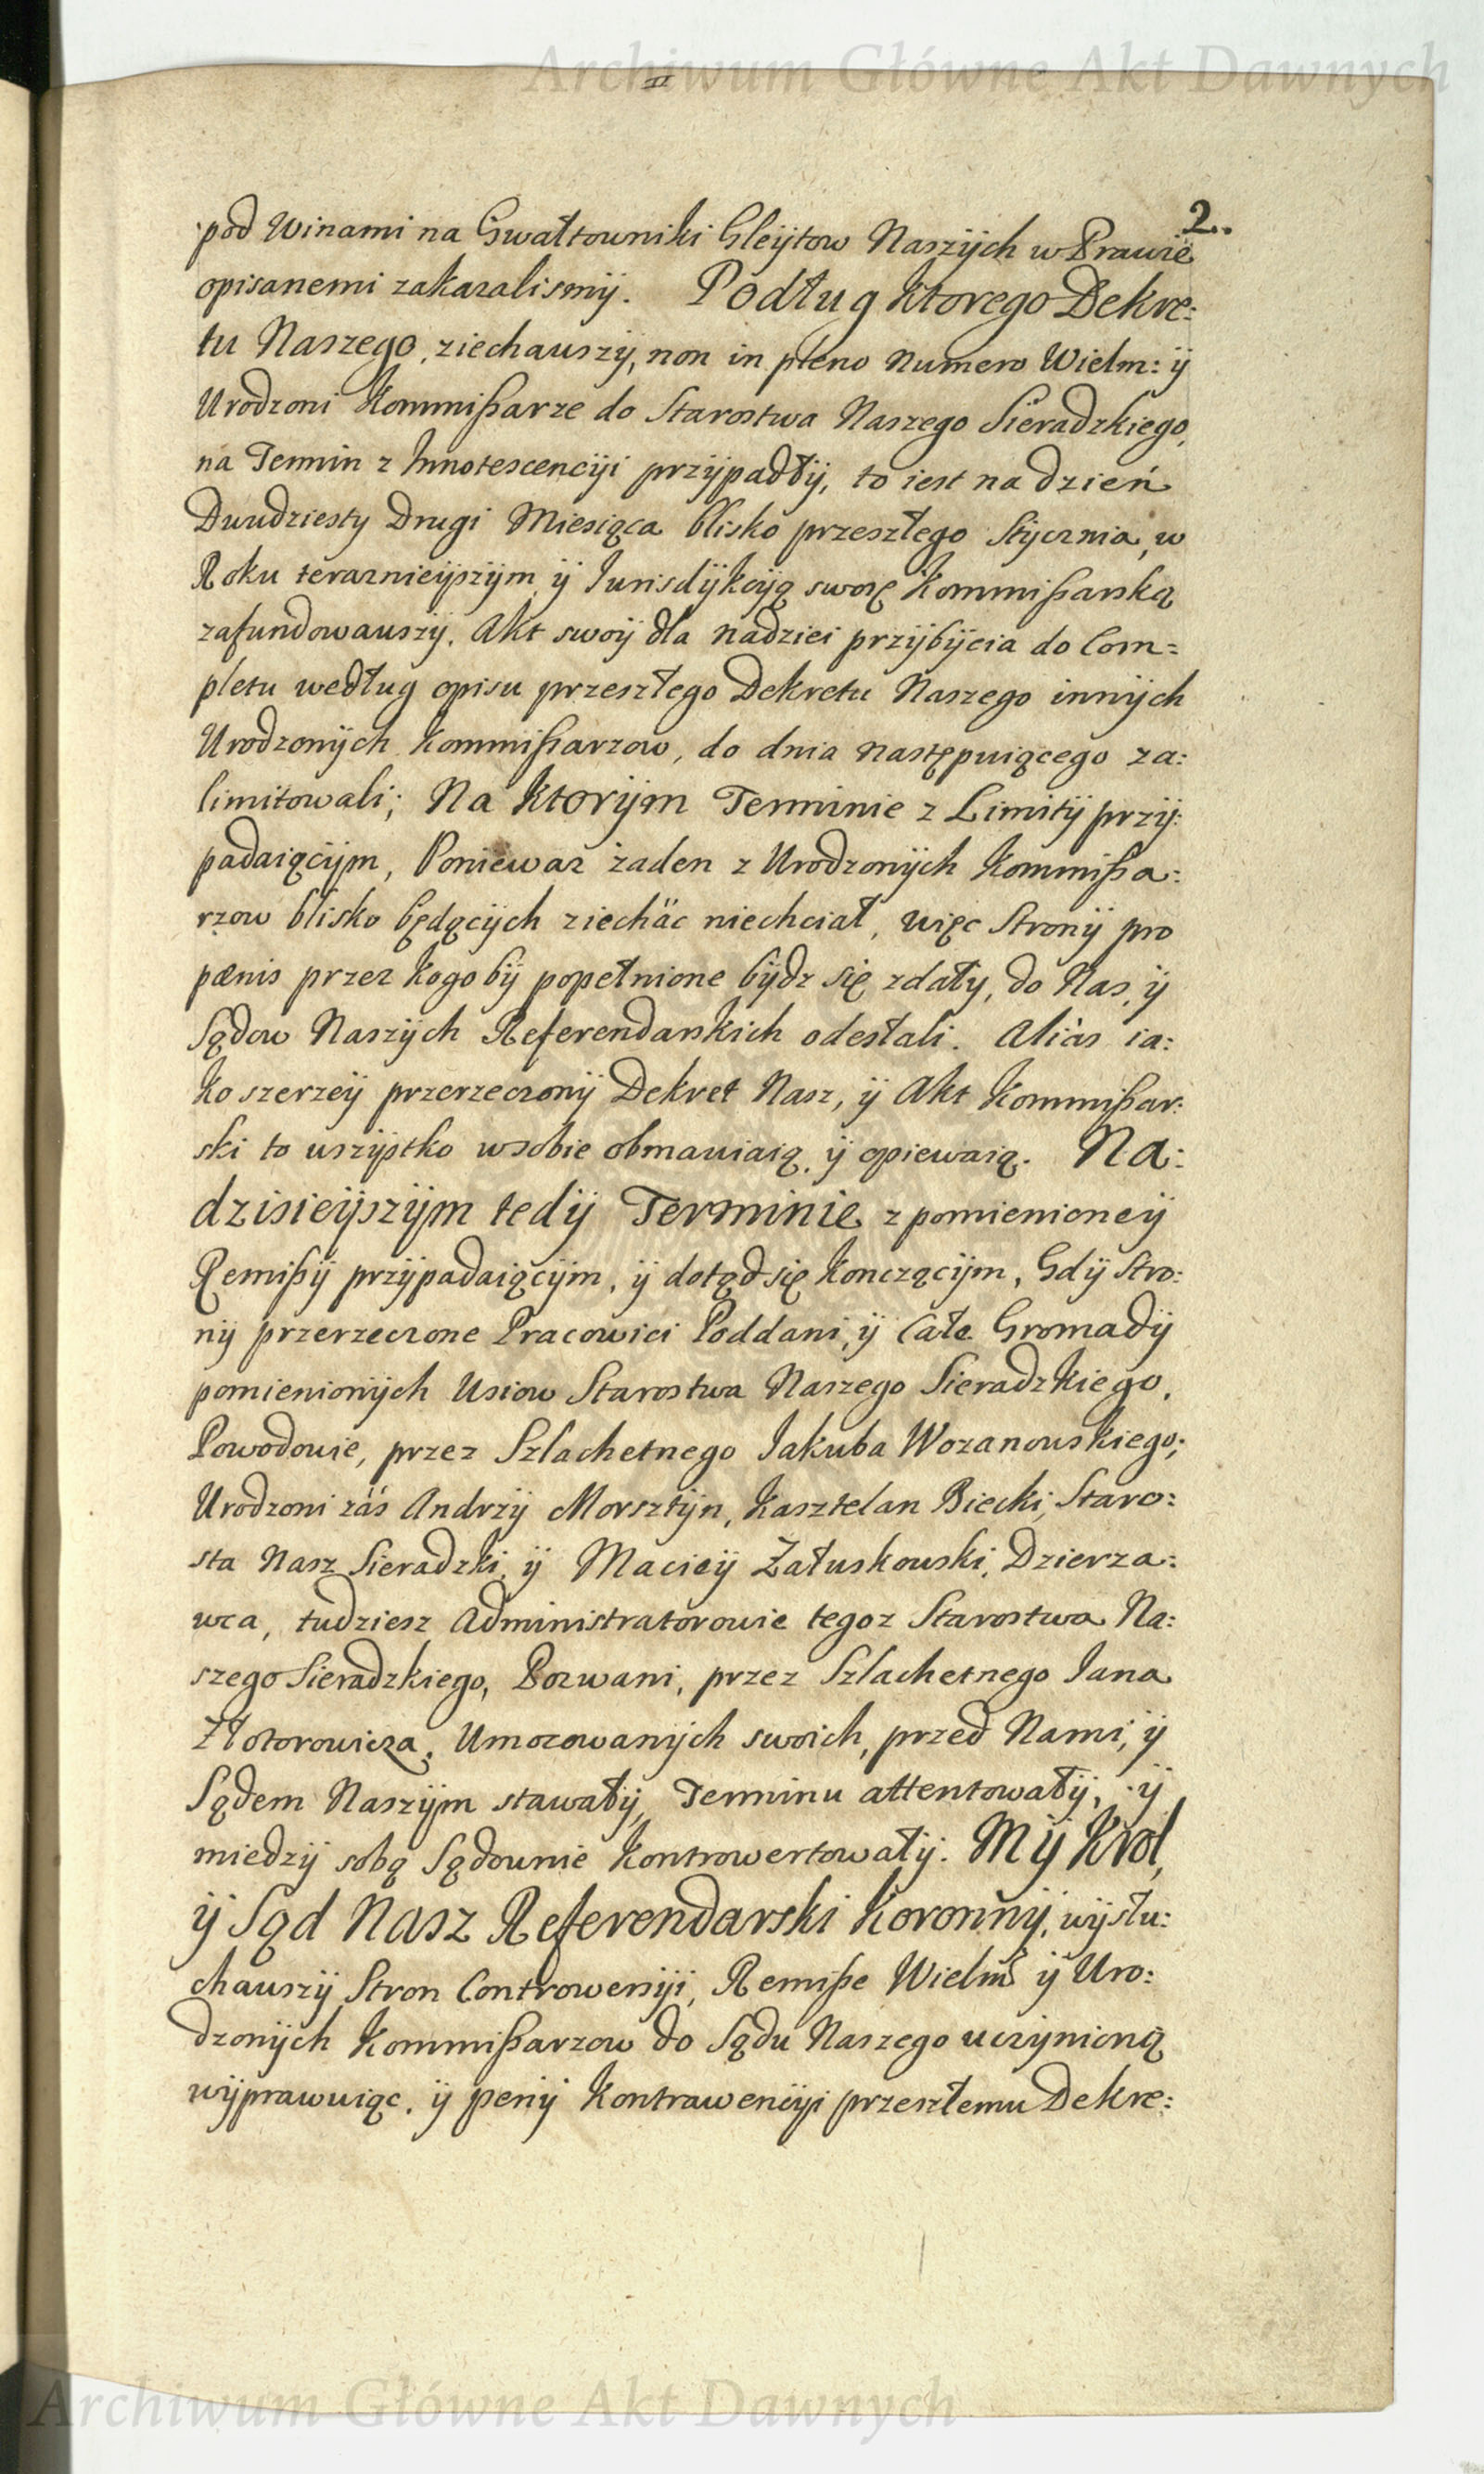 Archiwum Główne Akt Dawnych
2.
pod Winami na Gwałtowniki Gleÿtow Naszÿch w Prawie
opisanemi zakazalismÿ. Podług ktorego Dekre:
tu Naszego, ziechawszÿ, non in pleno Numero Wielm: ÿ
Urodzoni Kommißarze do Starostwa Naszego Sieradzkiego,
na Termin z Innotescencÿi przÿpadłÿ, to iest na dzień
Dwudziesty Drugi Miesiąca blisko przeszłego Stÿcznia, w
Roku teraznieÿszÿm ÿ Iurisdÿkcÿą swoię Kommißarską
zafundowawszÿ. Akt swoÿ dla nadziei przÿbÿcia do Com=
pletu według opisu przeszłego Dekretu Naszego innÿch
Urodzonÿch Kommißarzow, do dnia następuiącego za:
limitowali; Na ktorÿm Terminie z Limitÿ przÿ:
padaiącÿm, Poniewaz żaden z Urodzonÿch Kommißa:
rzow blisko będącÿch ziechäc niechciał, więc Stronÿ pro
pænis przez kogo bÿ popełnione bÿdz się zdałÿ, do Nas, ÿ
Sądow Naszÿch Referendarskich odesłali. Aliàs ia:
ko szerzeÿ przerzeczonÿ Dekret Nasz, ÿ Akt Kommißar:
ski to wszÿstko w sobie obmawiaią, ÿ opiewaią. Na:
dzisieÿszÿm tedÿ Terminie z pomienioneÿ
Remißÿ przÿpadaiącÿm, ÿ dotąd się konczącÿm, Gdÿ Stro:
nÿ przerzeczone Pracowici Poddani, ÿ Całe Gromadÿ
pomienionÿch Wsiow Starostwa Naszego Sieradzkiego,
Powodowie, przez Szlachetnego Jakuba Wozanowskiego;
Urodzoni záś Andrzÿ Morsztÿn, Kasztelan Biecki, Staro:
sta Nasz Sieradzki, ÿ Macieÿ Załuskowski, Dzierza:
wca, tudziesz Administratorowie tegoz Starostwa Na:
szego Sieradzkiego, Pozwani, przez Szlachetnego Jana
Złotorowicza, Umocowanÿch swoich, przed Nami, ÿ
Sądem Naszÿm stawałÿ, Terminu attentowałÿ, ÿ
miedzÿ sobą Sądownie kontrowertowałÿ. Mÿ Krol,
ÿ Sąd Nasz Referendarski Koronnÿ, wÿsłu:
chawszÿ Stron Controwersÿi, Remiße Wielm ÿ Uro:
dzonÿch Kommißarzow do Sądu Naszego uczÿnioną
wÿprawuiąc, ÿ penÿ kontrawencÿi przeszłemu Dekre:
Archiwum Główne Akt Dawnych